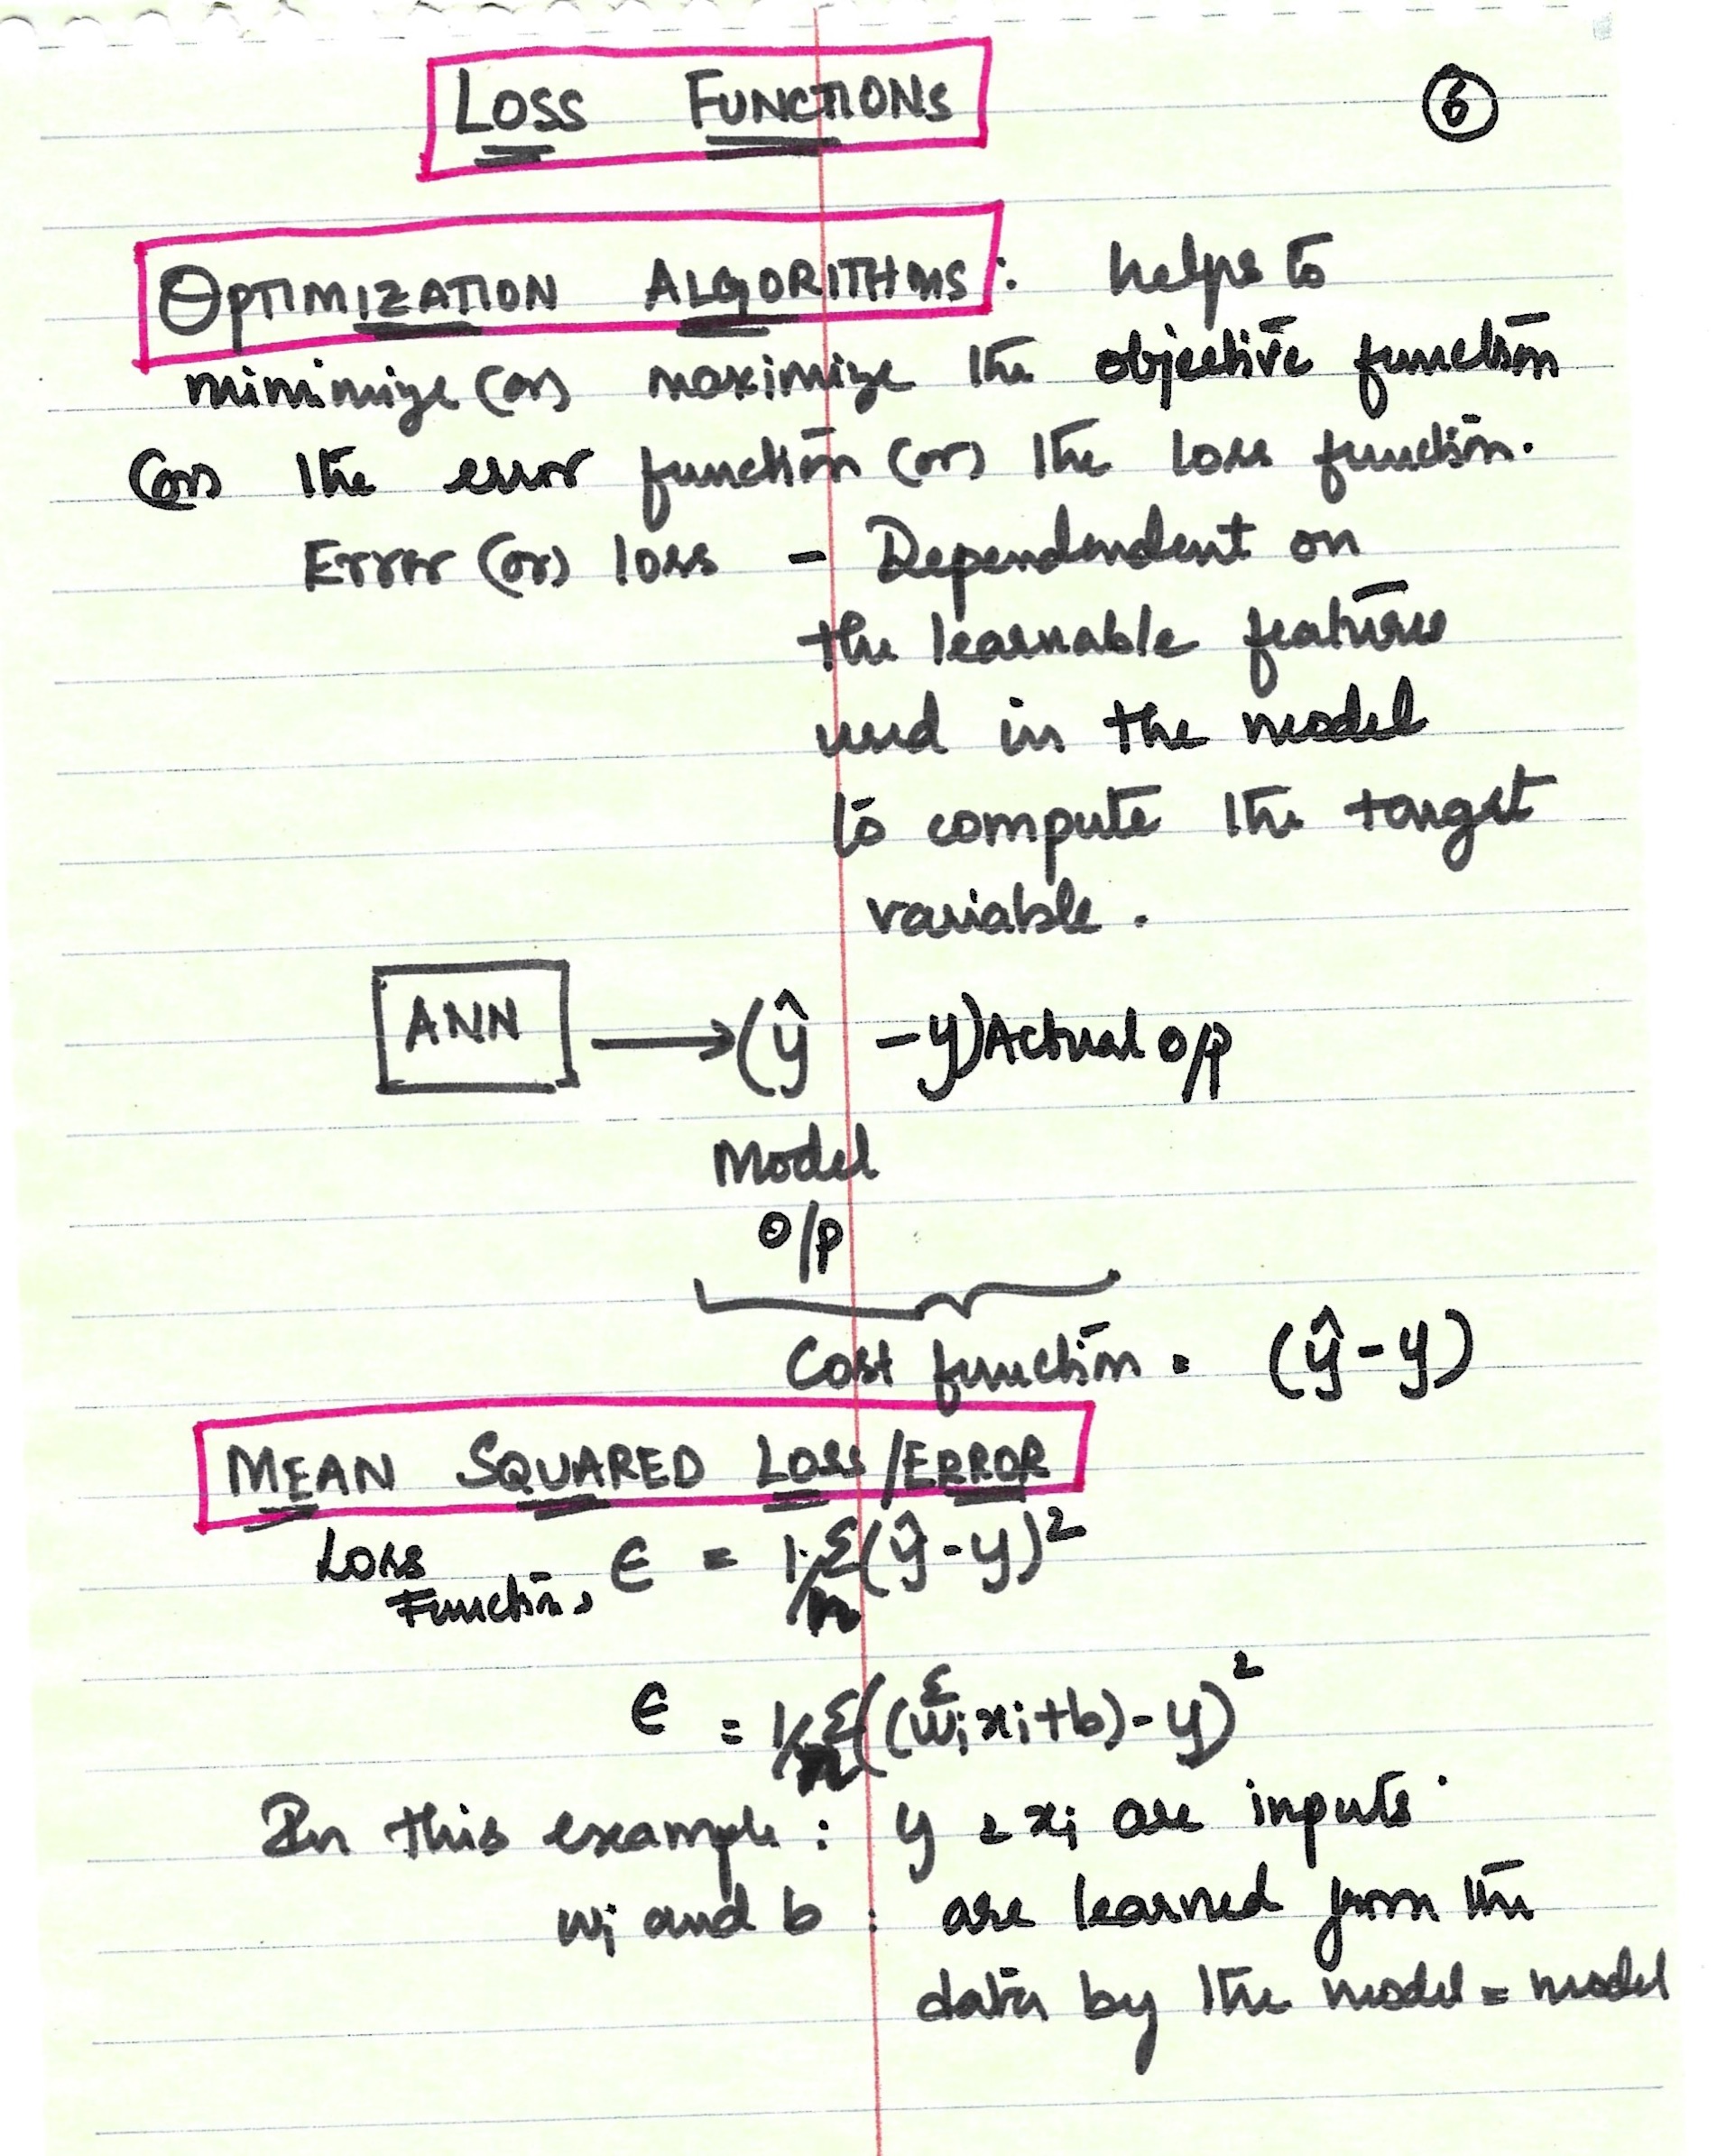 LOSS FUNCTIONS
6
OPTIMIZATION ALGORITHMS : helps to
minimize (or) maximize the objective function
(or) the error function (or) the loss function.
Error (or) loss - Dependendent on
the learnable features
used in the model
to compute the target
variable.
ANN → (ŷ - y) Actual O/P
Model
O/P
Cost function = (ŷ - y)
MEAN SQUARED LOSS / ERROR
Loss
Function, ϵ = 1/n Σ(ŷ - y)²
ϵ = 1/n Σ((Σ wᵢxᵢ + b) - y)²
In this example : y & xᵢ are inputs.
wᵢ and b : are learned from the
data by the model = model